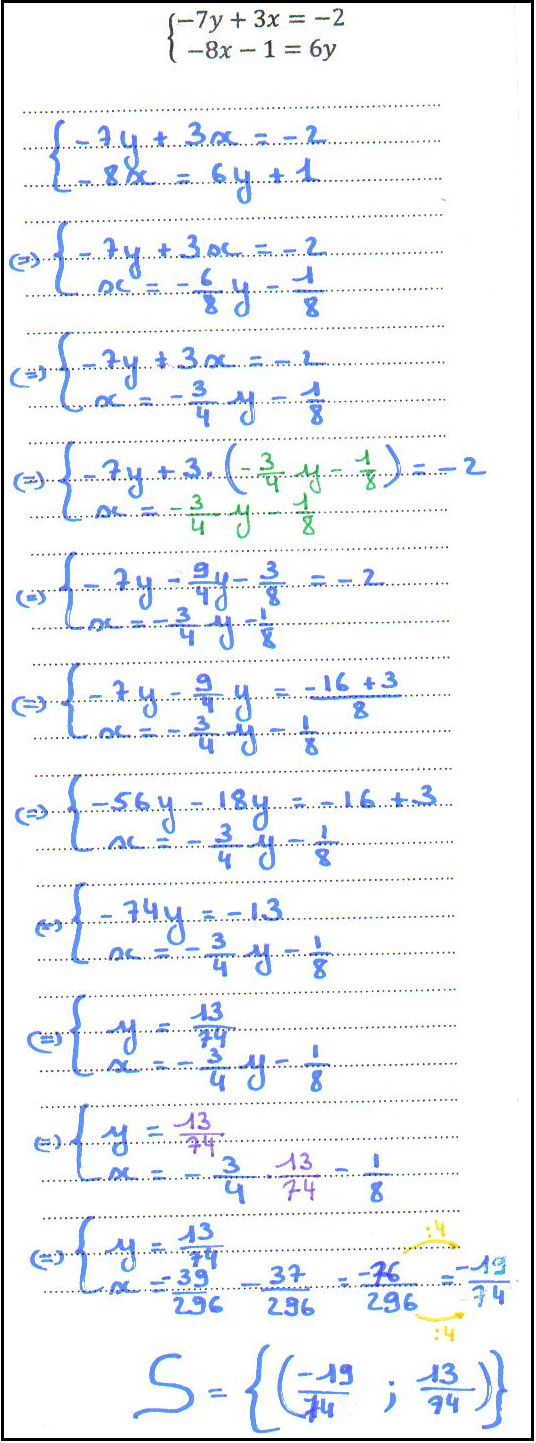 {−7y + 3x = −2
−8x − 1 = 6y
{-7y + 3x = -2
-8x = 6y + 1
(=) {-7y + 3x = -2
x = -6/8 y - 1/8
(=) {-7y + 3x = -2
x = -3/4 y - 1/8
(=) {-7y + 3 . (-3/4 y - 1/8) = -2
x = -3/4 y - 1/8
(=) {-7y - 9/4 y - 3/8 = -2
x = -3/4 y - 1/8
(=) {-7y - 9/4 y = -16 + 3/8
x = -3/4 y - 1/8
(=) {-56y - 18y = -16 + 3
x = -3/4 y - 1/8
(=) {-74y = -13
x = -3/4 y - 1/8
(=) {y = 13/74
x = -3/4 y - 1/8
(=) {y = 13/74
x = -3/4 . 13/74 - 1/8
:4
(=) {y = 13/74
x = -39/296 - 37/296 = -76/296 = -19/74
:4
S = {(-19/74 ; 13/74)}